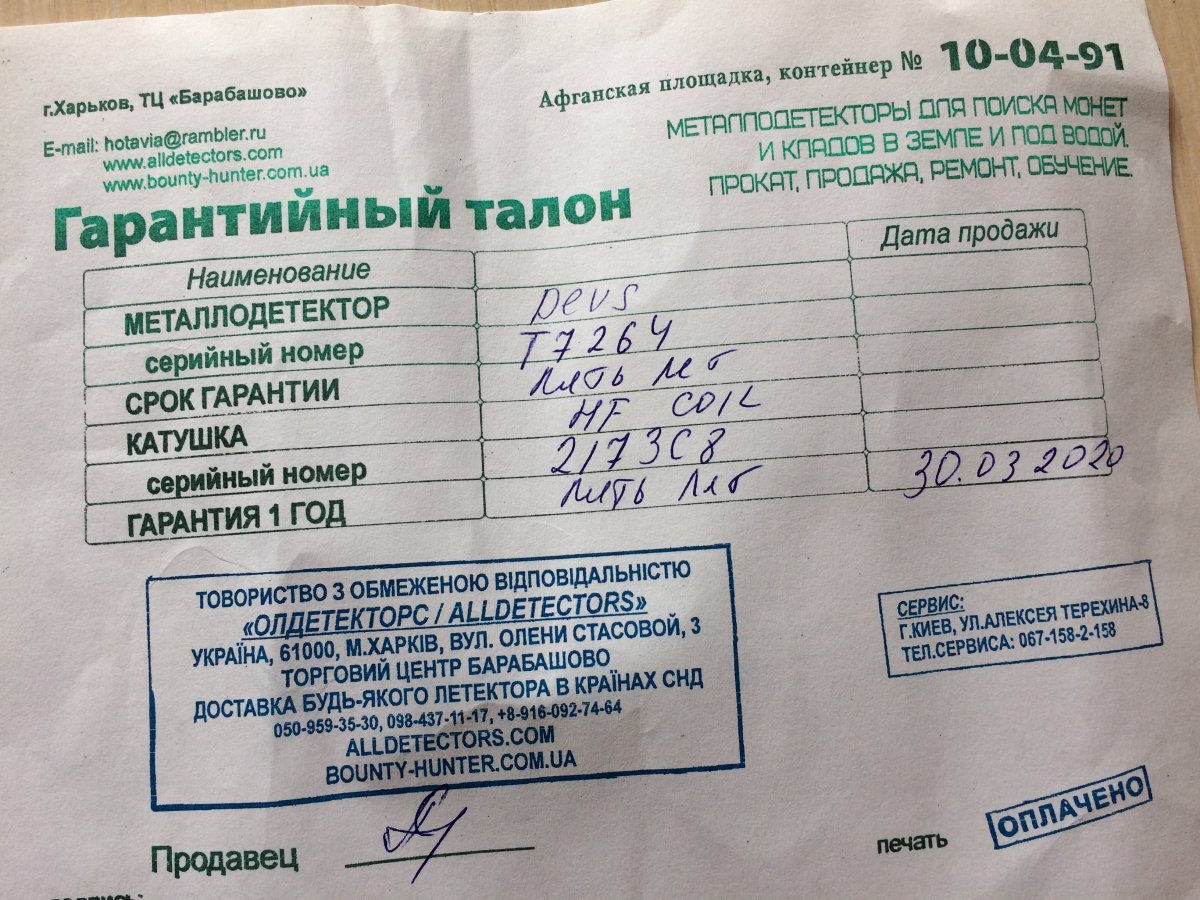 г.Харьков, ТЦ «Барабашово»
Афганская площадка, контейнер № 10-04-91
E-mail: hotavia@rambler.ru
www.alldetectors.com
www.bounty-hunter.com.ua
МЕТАЛЛОДЕТЕКТОРЫ ДЛЯ ПОИСКА МОНЕТ
И КЛАДОВ В ЗЕМЛЕ И ПОД ВОДОЙ.
ПРОКАТ, ПРОДАЖА, РЕМОНТ, ОБУЧЕНИЕ.
Гарантийный талон
Наименование Дата продажи
МЕТАЛЛОДЕТЕКТОР Deus
серийный номер T7264
СРОК ГАРАНТИИ пять лет
КАТУШКА HF COIL
серийный номер 2173C8
ГАРАНТИЯ 1 ГОД пять лет 30.03 2020
ТОВОРИСТВО З ОБМЕЖЕНОЮ ВІДПОВІДАЛЬНІСТЮ
«ОЛДЕТЕКТОРС / ALLDETECTORS»
УКРАЇНА, 61000, М.ХАРКІВ, ВУЛ. ОЛЕНИ СТАСОВОЙ, 3
ТОРГОВИЙ ЦЕНТР БАРАБАШОВО
ДОСТАВКА БУДЬ-ЯКОГО ЛЕТЕКТОРА В КРАЇНАХ СНД
050-959-35-30, 098-437-11-17, +8-916-092-74-64
ALLDETECTORS.COM
BOUNTY-HUNTER.COM.UA
СЕРВИС:
Г.КИЕВ, УЛ.АЛЕКСЕЯ ТЕРЕХИНА-8
ТЕЛ.СЕРВИСА: 067-158-2-158
Продавец
печать
ОПЛАЧЕНО